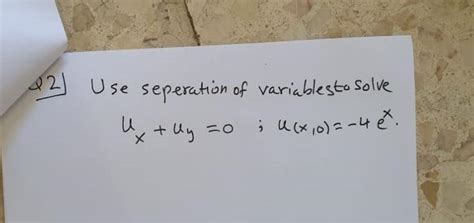 Q2] Use seperation of variables to solve
u_x + u_y = 0 ; u(x,0) = -4 e^x.